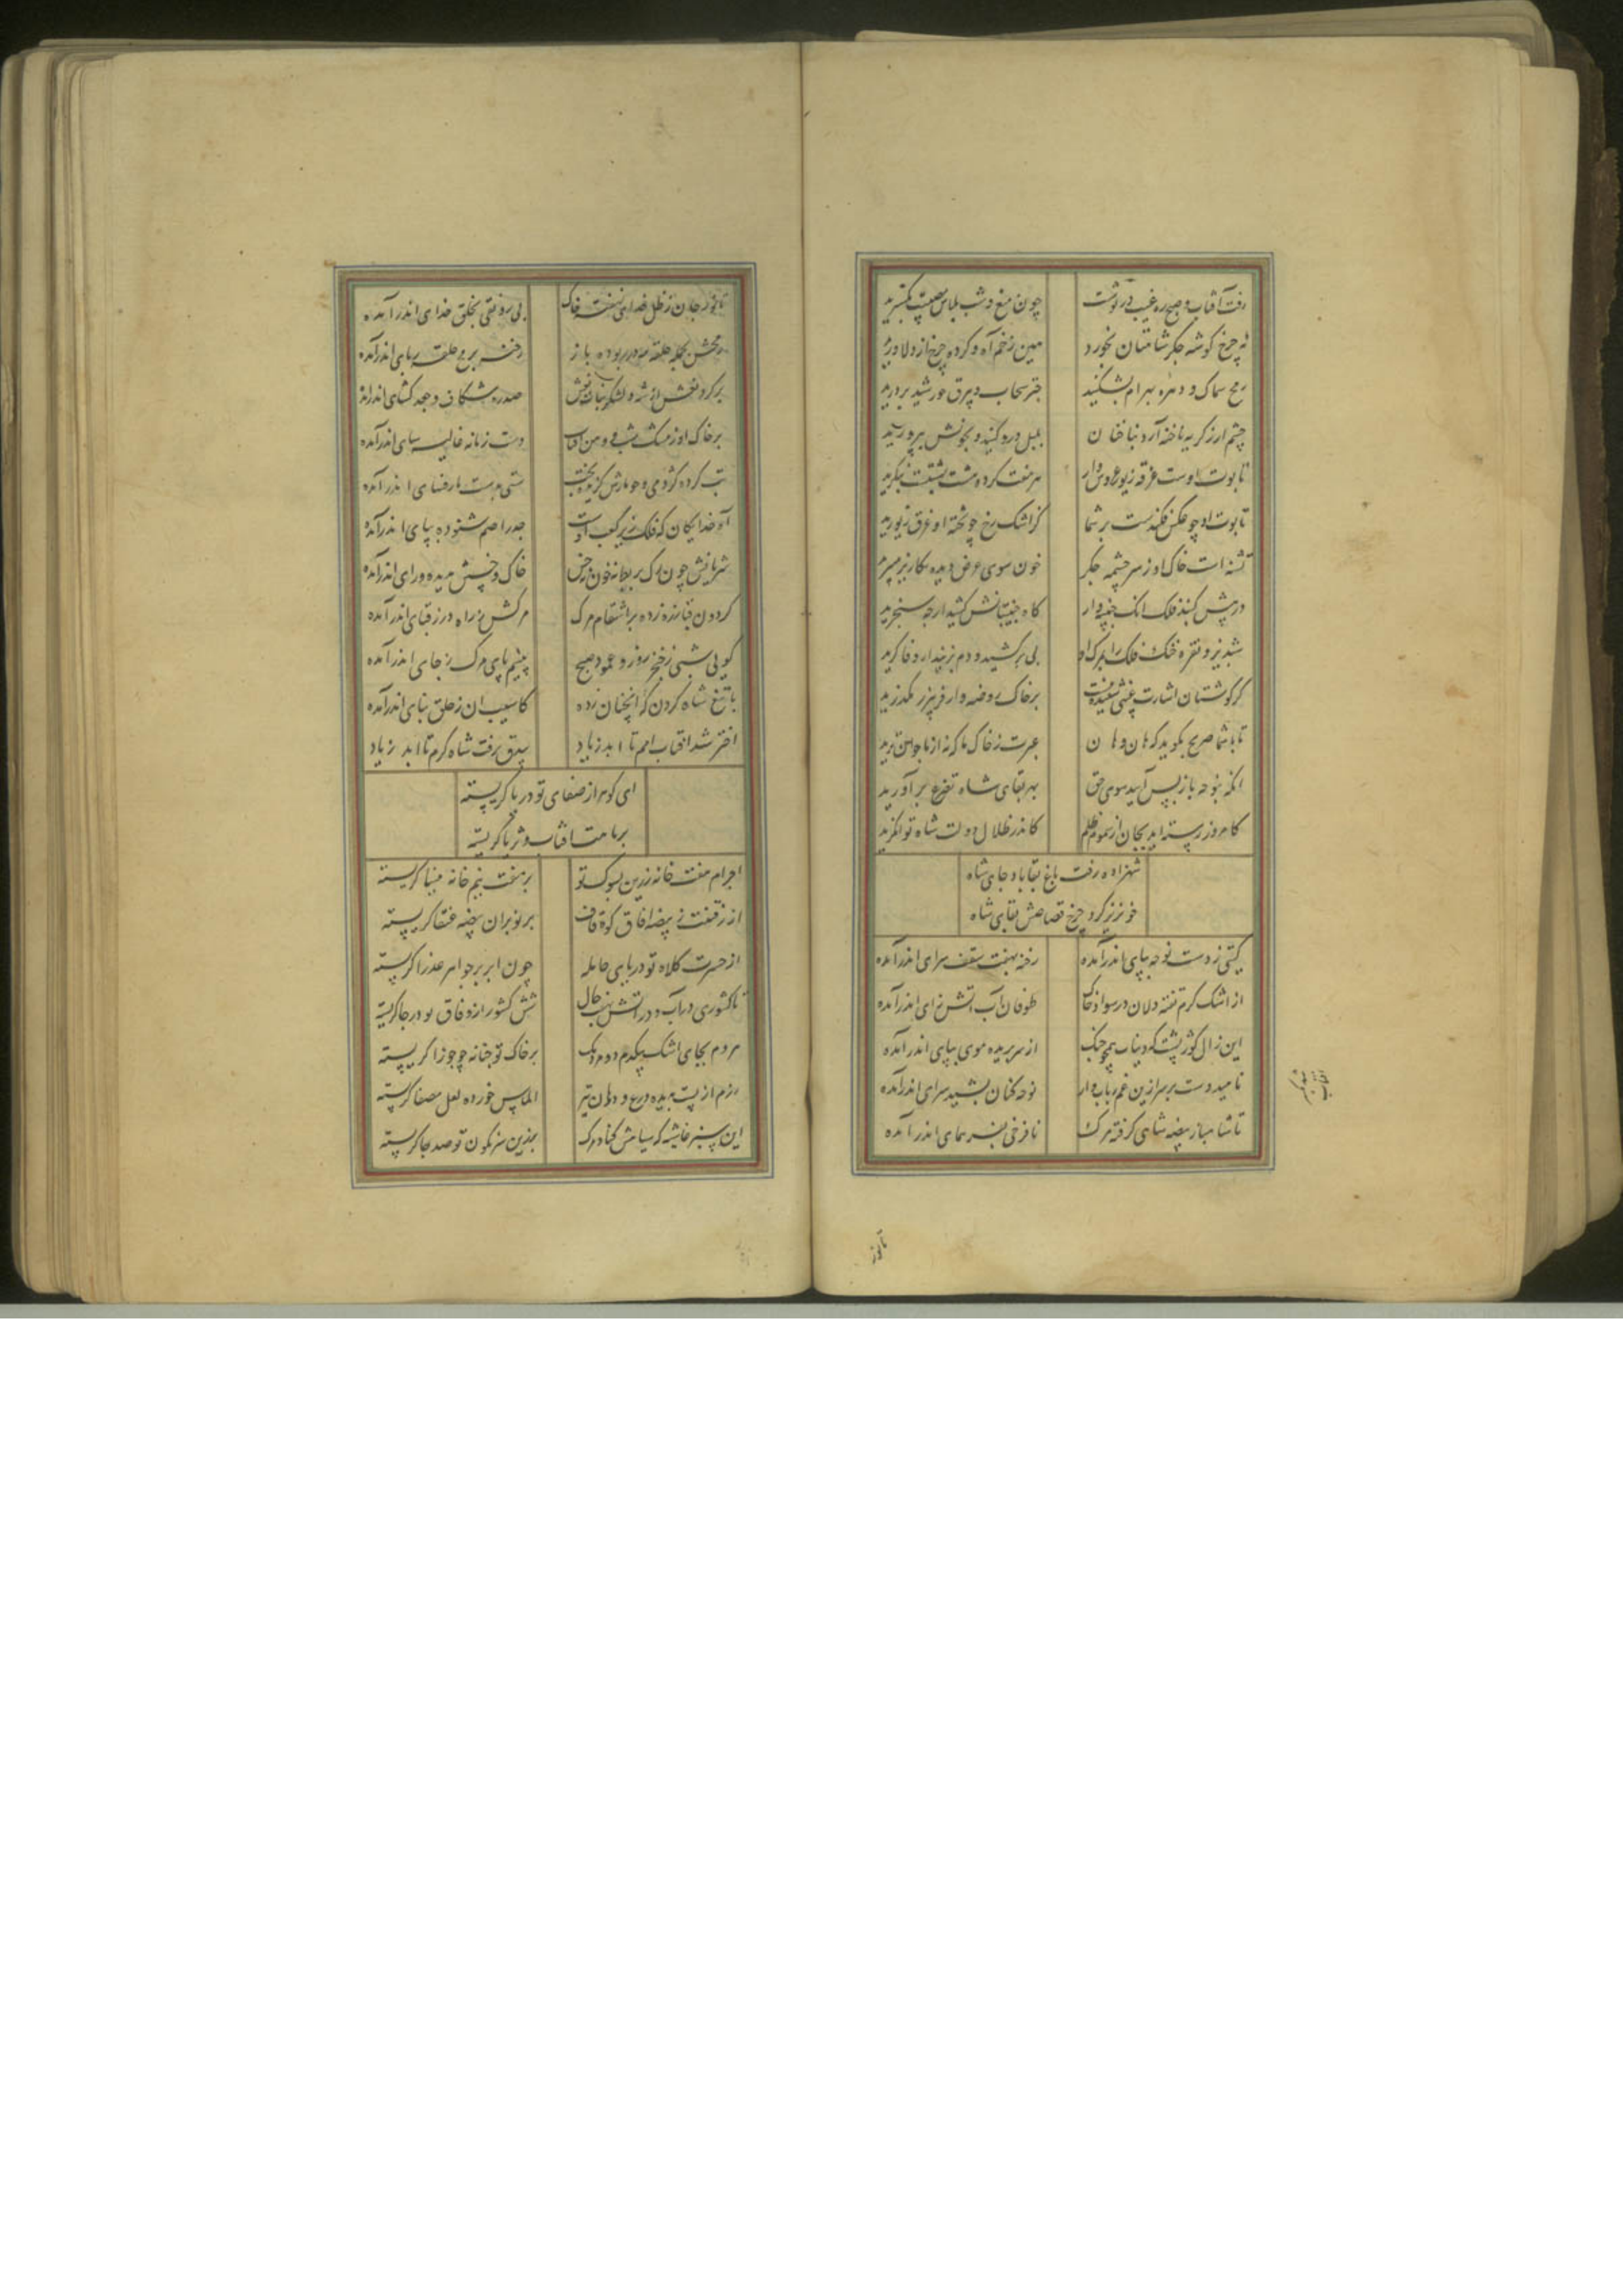 رفت آفتاب و صبح ره غیب در نوشت
چون میغ و شب پلاس مصیبت بگسترید
نه چرخ گوشه جگر شاهتان بخورد
هین زخم آه و گرده چرخ از دلاورید
رمح سماک و دهره بهرام بشکنید
چتر سحاب و بیرق خورشید بردرید
چشم ار ز گریه ناخنه آرد بناخنان
پلپل درو کنید و بخونش بپرورید
تابوت اوست غرقه زیور عروس وار
هر هفت کرده هشت بهشت است بنگرید
تابوت او چو عکس فکندست بر شما
کز اشک رخ چو تخته او غرق زیورید
تشنه است خاک او ز سر چشمه جگر
خون سوی عرض دیده بکاریز میبرید
در پیش گنبد فلک انک جنیبه وار
گاه جنیبتانش کشید ار چه سنجرید
شبدیز و نقره خنک فلک را بمرک او
پی برکشید و دم ببرید ار وفا گرید
گر گوشتان اشارت غیبی شنیده نیست
بر خاک روضه وار فریبرز بگذرید
تا با شما صریح بگوید که هان و هان
عبرت ز خاک ما که نه از ما جوان ترید
انگه بنوحه باز پس آیید سوی حق
بهر بقای شاه تضرع برآورید
کامروز رسته اید بجان از سموم ظلم
کاندر ظلال دولت شاه توانگرید
شهزاده رفت باغ بقا باد جای شاه
خونریز کرد چرخ قصاصش بقای شاه
گیتی ز دست نوحه بپای اندر آمده
رخنه بهفت سقف سرای اندر آمده
از اشک گرم تفته دلان در سواد خاک
طوفان آب آتش زای اندر آمده
این زال گوژپشت که دنیاست همچو چنگ
از سر بریده موی بپای اندر آمده
ناهید دست بر سر ازین غم رباب وار
نوحه کنان بشید سرای اندر آمده
تا شاهباز بیضه شاهی گرفته مرک
نا فرخی بفر همای اندر آمده
تا نور
تا نور جان ز ظل خدای نهفته خاک
بی رونقی بخلق خدای اندر آمده
رمحش بحمله حلقه مه در ربوده باز
رخنه برمح حلقه ربای اندر آمده
بر خاک او ز مشک شب و دهن آفتاب
دست زمانه غالیه سای اندر آمده
آه آن خدایگان که فلک زیر کعب اوست
جذر اصم شنوده بپای اندر آمده
گردون قبا زره زده بر انتقام مرک
مرگش ز راه درز قبای اندر آمده
گویی شبی ز خنجر روز و عمود صبح
بینیم پای مرگ ز جای اندر آمده
با تیغ شاه گردن مرگ آنچنان زده
کاسیب آن ز حلق بنای اندر آمده
اختر شد آفتاب امم تا ابد زیاد
بیدق برفت شاه کرم تا ابد زیاد
ای گوهر از صفای تو دریا گریسته
بر ماهت آفتاب و ثریا گریسته
اجرام هفت خانه زرین بسوک تو
بر هفت بام خانه مینا گریسته
از رفتنت ز بیضه آفاق کوه قاف
بر نوبران بیضه عنقا گریسته
از حسرت کلاه تو دریای حامله
چون ابر بر جواهر عذرا گریسته
تا کشوری در آب و در آتش نهفته خاک
شش کشور از وفاق تو در جا گریسته
مردم بجای اشک بیکدم دو مردمک
بر خاک تو جنابه چو جوزا گریسته
رزم از پیت بدیده درع و دهان تیر
الماس خورده لعل مصفا گریسته
این سبز غاشیه که سیاهش کناد مرک
بر زین سرنگون تو صد جا گریسته